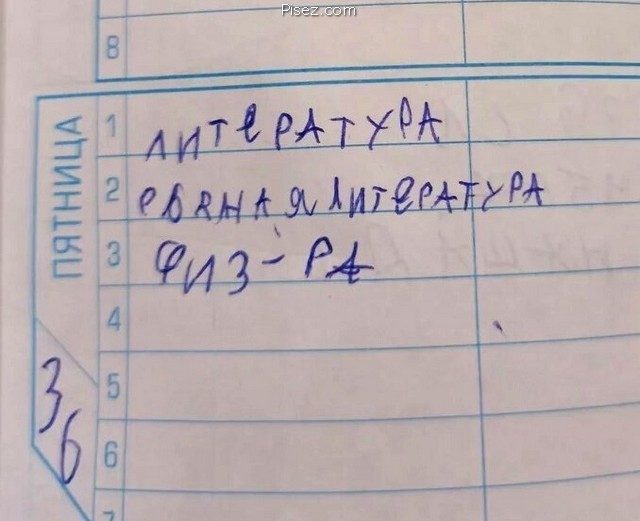 Pisez.com
8
ПЯТНИЦА
1 ЛИТЕРАТУРА
2 РВАНАЯ ЛИТЕРАТУРА
3 ФИЗ-РА
4
5
6
7
36